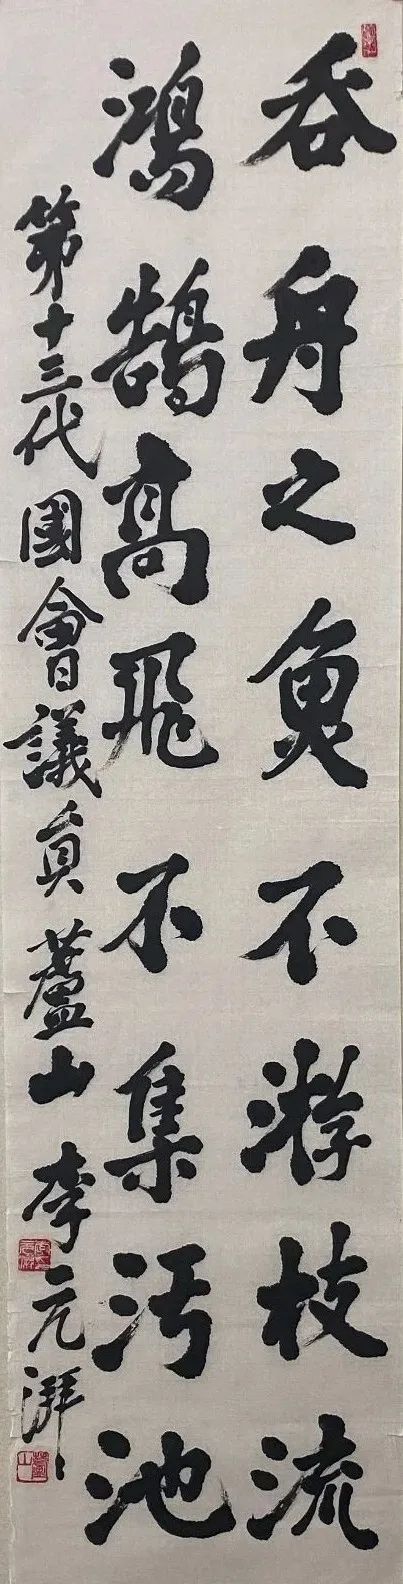 吞舟之魚不游枝流
鴻鵠高飛不集汚池
第十三代國會議員蘆山李元湃